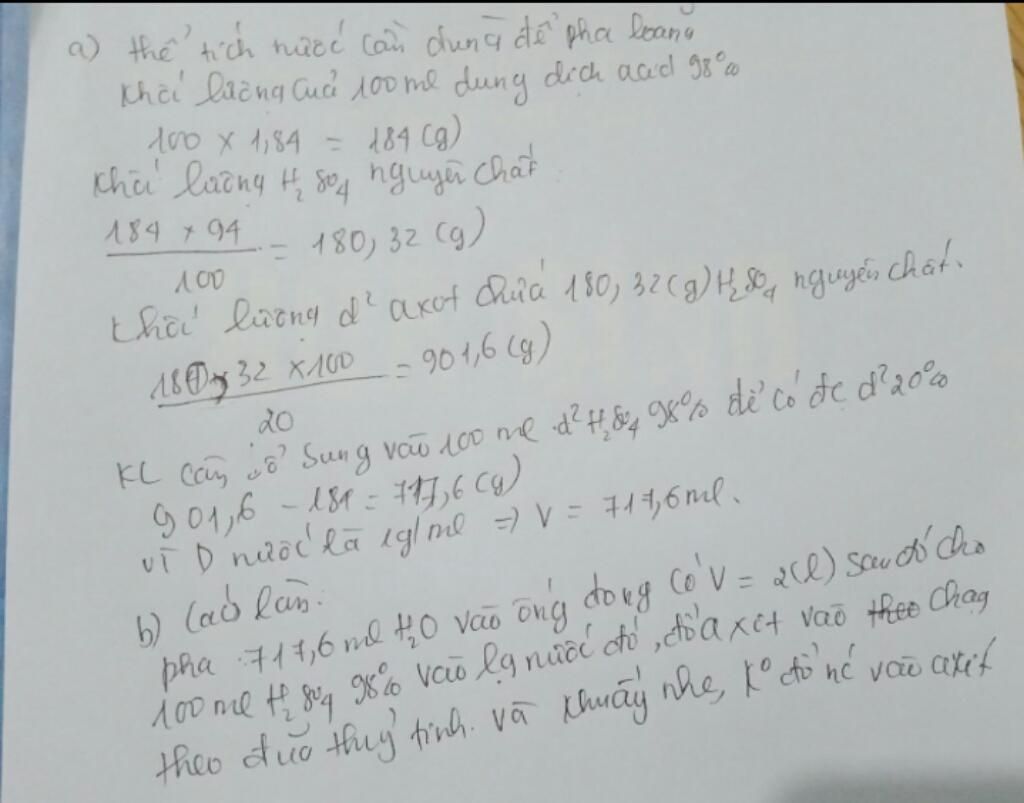 a) thể tích nước cần dùng để pha loãng
Khối lượng của 100 ml dung dịch acid 98%
100 x 1,84 = 184 (g)
Khối lượng H2SO4 nguyên chất :
184 x 94
/100 = 180,32 (g)
Khối lượng d² axit chứa 180,32 (g) H2SO4 nguyên chất.
180,32 x 100
/20 = 901,6 (g)
KL cần bổ sung vào 100 ml d² H2SO4 98% để có đc d² 20%
901,6 - 184 = 717,6 (g)
vì D nước là 1g/ml => V = 717,6 ml.
b) Cách làm:
pha 717,6 ml H2O vào ống đong có V = 2(l) sau đó cho
100 ml H2SO4 98% vào lg nước đó, đổ axit vào theo chậm
theo đũa thuỷ tinh. và khuấy nhẹ, K° đổ nc vào axit